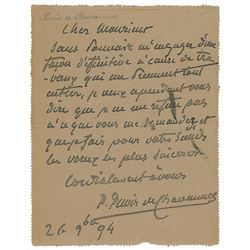 Puvis de Chavannes
Cher Monsieur
Sans pouvoir m'engager d'une
façon définitive à cause de tra-
vaux qui me tiennent tout
entier, je veux cependant vous
dire que je ne me refuse pas
à ce que vous me demandez et
que je fais pour votre succès
les vœux les plus sincères
Cordialement à vous
P. Puvis de Chavannes
26 9bre 94